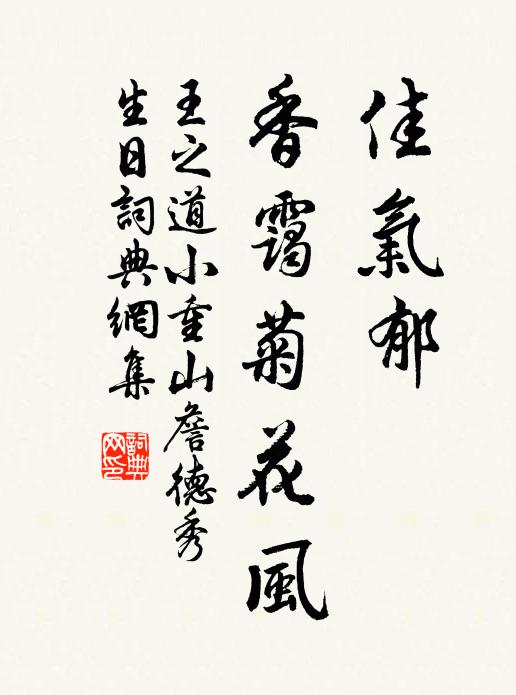 佳氣郁
香靄菊花風
王之道小重山詹德秀
生日詞典網集
詞典網印